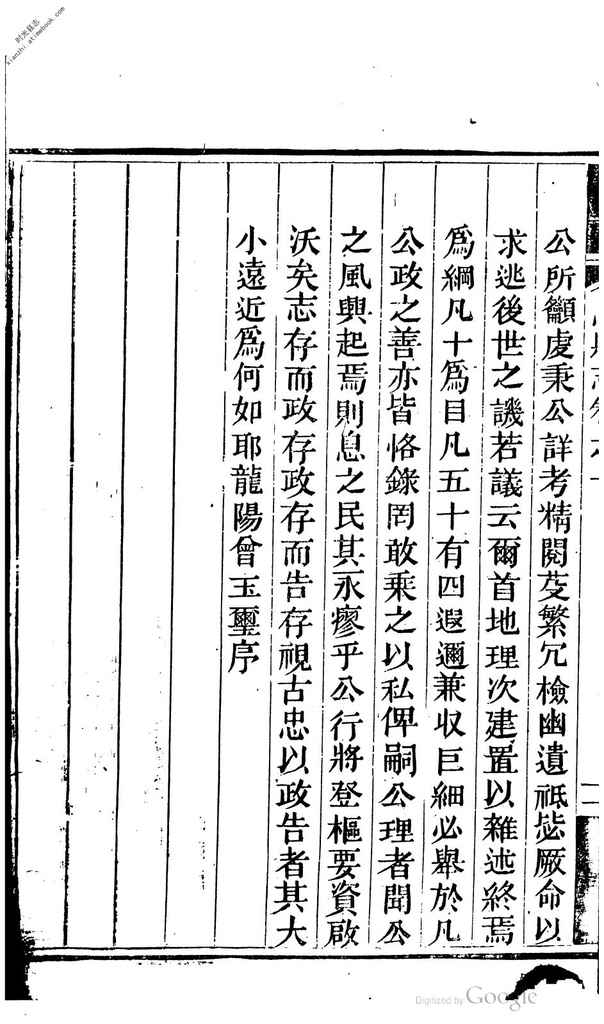 时光县志
xianzhi.atimebook.com
公所籲虔秉公詳考精閱芟繁冗檢幽遺祇毖厥命以
求逃後世之譏若議云爾首地理次建置以雜述終焉
爲綱凡十爲目凡五十有四遐邇兼収巨細必舉於凡
公政之善亦皆恪錄罔敢乘之以私俾嗣公理者聞公
之風興起焉則息之民其永瘳乎公行將登樞要資啟
沃矣志存而政存政存而告存視古忠以政告者其大
小遠近爲何如耶龍陽曾玉璽序
Digitized by Google